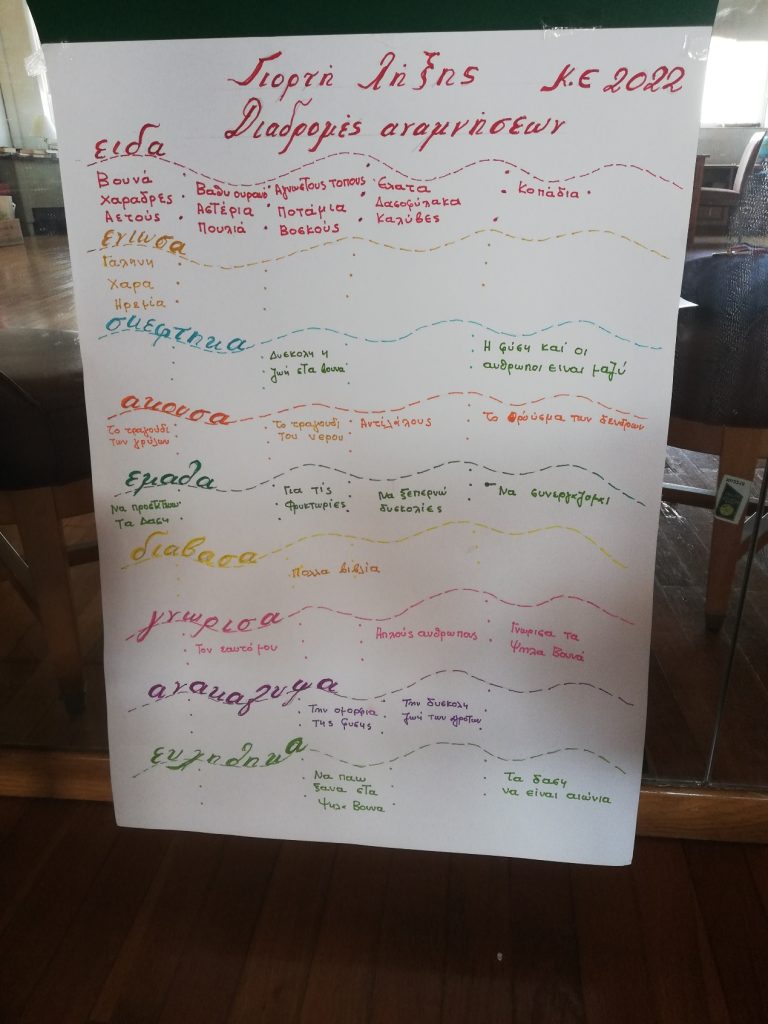 Γιορτή Λήξης Κ.Ε 2022
Διαδρομές αναμνήσεων
ειδα
Βουνά
Χαραδρες
Αετούς
Βαθυ ουρανό
Αστέρια
Πουλιά
Αγνωστους τοπους
Ποτάμια
Βοσκούς
Ελατα
Δασοφύλακα
Καλύβες
Κοπάδια
ενιωσα
Γαληνη
Χαρα
Ηρεμία
σκεφτηκα
Δυσκολη η
ζωή στα βουνα
Η φύση και οι
ανθρωποι ειναι μαζύ
ακουσα
Το τραγούδι
των γρύλων
Το τραγουδι
του νερου
Αντιλάλους
Το θρόϊσμα των δενδρων
εμαθα
Να προστατευω
Τα Δαση
Για τίς
Φρυκτωρίες
Να ξεπερνώ
δυσκολίες
Να συνεργαζομαι
διαβασα
Πολλα βιβλία
γνωρισα
Τον εαυτό μου
Απλούς ανθρωπους
Γνώρισα τα
Ψηλα Βουνά
ανακαλυψα
Την ομορφια
της φυσης
Την δυσκολη
ζωή των αγροτων
ευχηθηκα
Να παω
ξανα στα
Ψηλα Βουνα
Τα δαση
να είναι αιώνια